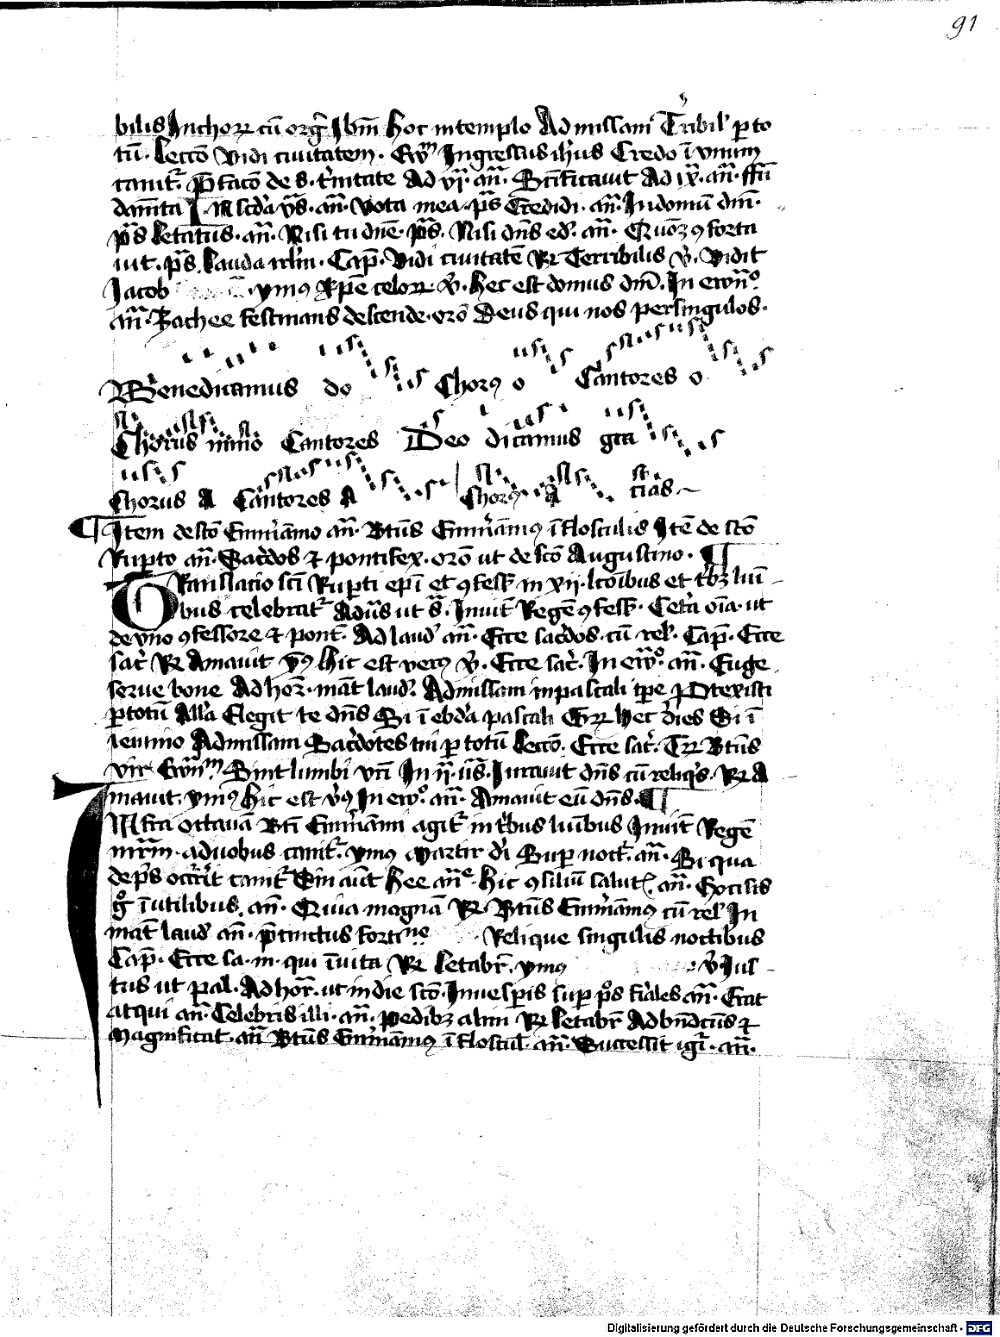 91
bilis In choꝝ cū orgͣ Ibm̄ hoc in templo Ad missam Tribil' ꝑ to
tū · Lecco Vidi ciuitatem · Ewm̄ Ingressus ih̄us Credo ī vnum
canit᷑ · Pͤfaco de s · t'nitate Ad vj · an̄ · Scificauit Ad ix · an̄ · ffū
damēta In scd'a vs̄ · an̄ · Vota mea · ps̄ Credidi · an̄ · In domū dm̄ ·
ps̄ Letatus · an̄ · Nisi tu dn̄e · ps̄ · Nisi dn̄s ed' · an̄ · Quoꝫ ꝯforta
uit · ps̄ Lauda irl'm · Cap̄ · Vidi ciuitatē ℞ Terribilis v̄ · Vidit
Jacob ymꝰ Xp̄e celoꝝ v̄ · hec est domus dm̄ · In ewn̄º ·
an̄ · Zachee festinans descende · orō Deus qui nos per singulos ·
Benedicamus do Chorꝰ o Cantores o
Chorus mino Cantores Deo dicamus gra
Chorus A Cantores A Chorꝰ A cias
¶ Item de scō Emm'āmo an̄ · Btūs Emm'āmꝰ ī flosculis Itē de scō
Rup̱to an̄ · Sac'dos ⁊ pontifex · orō ut de scō Augustino · ¶
Translatio sc̄i Rup̱ti ep̄i et ꝯfess' in xij · lcōibus et t'bꝫ luī
bus celebrat᷑ Adūs ut s̄ · Inuit̄ Regē ꝯfess' · Cet'a oīa · ut
de vno ꝯfessore ⁊ pont̄ · Ad laud' an̄ · Ecce sac'dos · cū rel' · Cap̄ · Ecce
sac' ℞ Amauit ys̄ hic est verꝰ v̄ · Ecce sac' · In ew̄º · an̄ · Euge
serue bone Ad hor̄ · māt laud' · Ad missam in pascali tp̄e Ptexisti
ꝑ totū All'a Elegit te dn̄s Si ī ebd'a pascali Gꝝ hec dies Si ī
ieiunio Ad missam Sac'dotes tui ꝑ totū Lecco · Ecce sac' · Tꝝ Btūs
vir Ewn̄m Sint lumbi vr̄i In ij · us̄ · Iurauit dn̄s cū reliqs · ℞ A
mauit · ymꝰ hic est v'ꝰ In ewº · an̄ · Amauit eū dn̄s · ¶
INfra octauā Btī Emm'āmi agit᷑ in t'bus luībus Inuit̄ Regē
mr̄m · a duobus canit᷑ · ymꝰ Martir d'i Sup̱ noct᷑ · an̄ · Si qua
de ps̄ occ'rit canit᷑ Ein aut hee an̄e · hic ꝯsiliū salut᷑ · an̄ · Hortis
gͦ ī utilibus · an̄ · Quia magnā ℞ · Btūs Emm'āmꝰ cū rel' In
māt laud' an̄ · Pͤcinctus fortine Relique singulis noctibus
Cap̄ · Ecce sa · m · qui īuita ℞ Letabr̄ · ymꝰ v̄ Ius
tus ut pal · Ad hor̄ · ut in die scō · In uesp̱is sup̱ ps̄ fīales an̄ · Erat
atqui an̄ · Celebris illi · an̄ · pedibꝫ almi ℞ Letabr̄ Ad bn̄dictus ⁊
Magnificat · an̄ Btūs Emm'āmꝰ ī flostul · an̄ · Successit igr̄ · an̄ ·
Digitalisierung gefördert durch die Deutsche Forschungsgemeinschaft - DFG